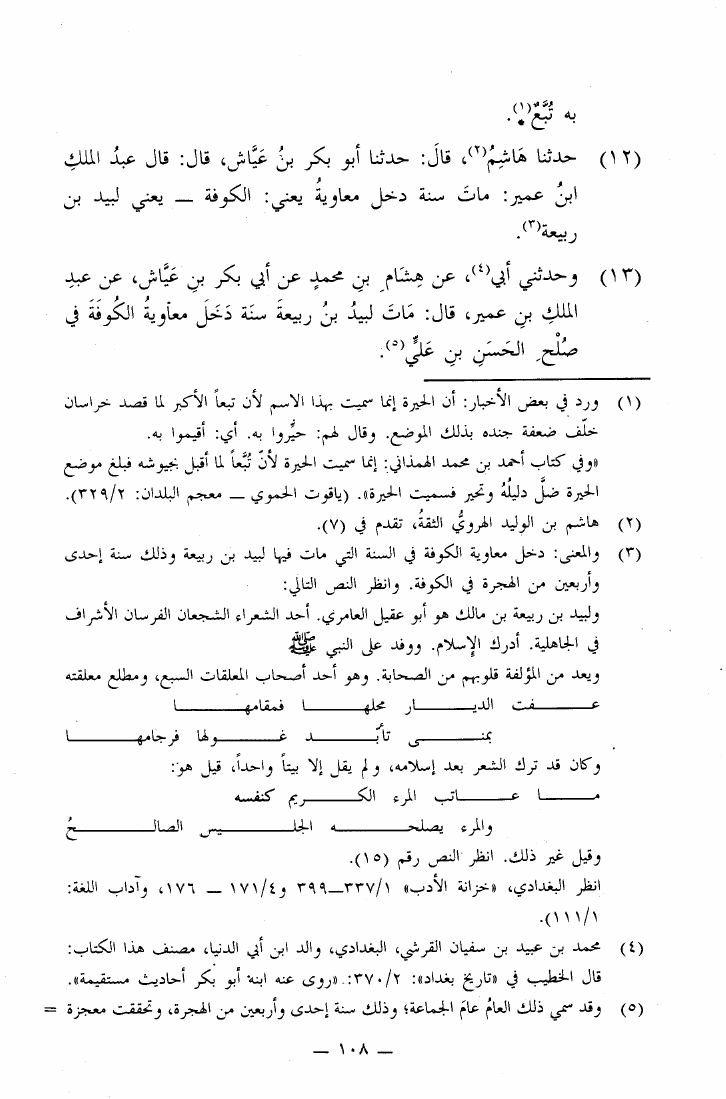 به تُبَّعٌ(١).
(١٢) حدثنا هَاشِمُ(٢)، قالَ: حدثنا أبو بكر بنُ عَيَّاش، قال: قال عبدُ الملكِ
ابنُ عمير: ماتَ سنة دخل معاويةُ يعني: الكوفة ــ يعني لبيد بن
ربيعة(٣).
(١٣) وحدثني أبي(٤)، عن هِشَامِ بنِ محمدٍ عن أبي بكر بنِ عَيَّاش، عن عبدِ
الملكِ بنِ عمير، قال: مَاتَ لبيدُ بنُ ربيعةَ سنَة دَخَلَ معاويةُ الكُوفَةَ في
صُلْحِ الحَسَنِ بنِ عَليٍّ(٥).
(١) ورد في بعض الأخبار: أن الحيرة إنما سميت بهذا الاسم لأن تبعاً الأكبر لما قصد خراسان
خلّف ضعفة جنده بذلك الموضع. وقال لهم: حيِّروا به. أي: أقيموا به.
«وفي كتاب أحمد بن محمد الهمذاني: إنما سميت الحيرة لأنّ تُبَّعاً لما أقبل بجيوشه فبلغ موضع
الحيرة ضلَّ دليلُهُ وتحير فسميت الحيرة». (ياقوت الحموي ــ معجم البلدان: ٣٢٩/٢).
(٢) هاشم بن الوليد الهرويُّ الثقةُ، تقدم في (٧).
(٣) والمعنى: دخل معاوية الكوفة في السنة التي مات فيها لبيد بن ربيعة وذلك سنة إحدى
وأربعين من الهجرة في الكوفة. وانظر النص التالي:
ولبيد بن ربيعة بن مالك هو أبو عقيل العامري. أحد الشعراء الشجعان الفرسان الأشراف
في الجاهلية. أدرك الإسلام. ووفد على النبي ﷺ
ويعد من المؤلفة قلوبهم من الصحابة. وهو أحد أصحاب المعلقات السبع، ومطلع معلقته
عـــفت الديـــار محلهـــا فمقامهـــا
بمنـــى تأبّـــد غـــولها فرجامهـــا
وكان قد ترك الشعر بعد إسلامه، ولم يقل إلا بيتاً واحداً، قيل هو:
مـــا عـــاتب المرء الكـــريم كنفسه
والمرء يصلحـــه الجلـــيس الصالـــحُ
وقيل غير ذلك. انظر النص رقم (١٥).
انظر البغدادي، «خزانة الأدب» ٣٣٧/١ــ٣٩٩ و١٧١/٤ ــ ١٧٦، وآداب اللغة:
١١١/١).
(٤) محمد بن عبيد بن سفيان القرشي، البغدادي، والد ابن أبي الدنيا، مصنف هذا الكتاب:
قال الخطيب في «تاريخ بغداد»: ٣٧٠/٢: «روى عنه ابنه أبو بكر أحاديث مستقيمة».
(٥) وقد سمي ذلك العامُ عامَ الجماعة؛ وذلك سنة إحدى وأربعين من الهجرة، وتحققت معجزة =
ــ ١٠٨ ــ